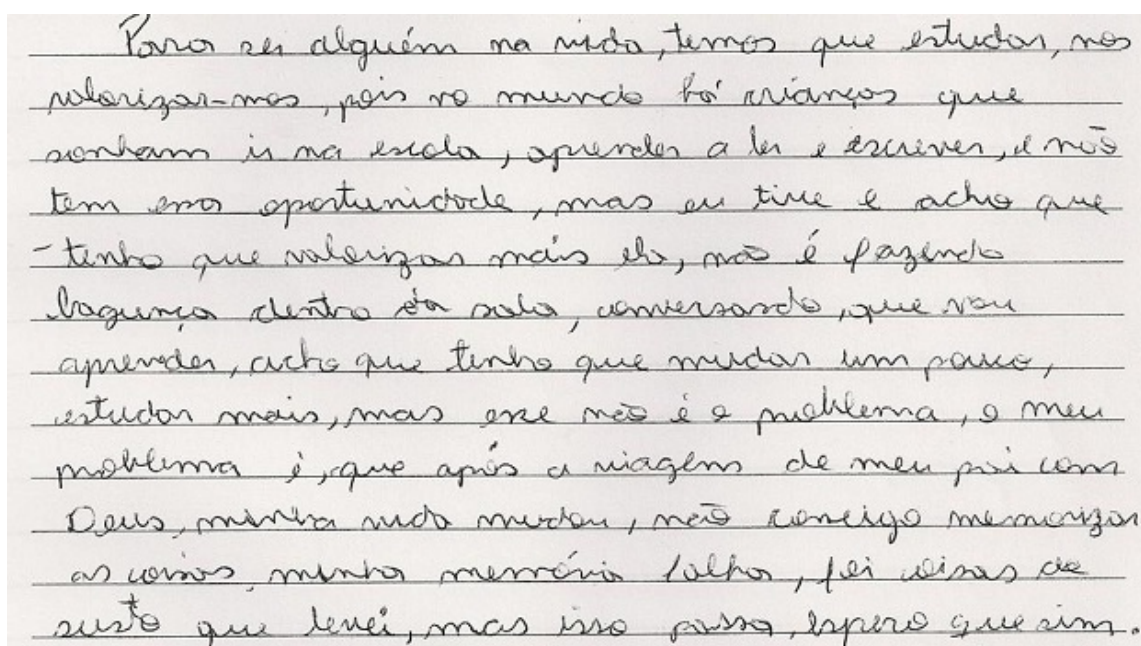 Para ser alguém na vida, temos que estudar, nos
valorizar-mos, pois no mundo há crianças que
sonham ir na escola, aprender a ler e escrever, e não
tem essa oportunidade, mas eu tive e acho que
-tenho que valorizar mais ela, não é fazendo
bagunça dentro da sala, conversando, que vou
aprender, acho que tenho que mudar um pouco,
estudar mais, mas esse não é o problema, o meu
problema é, que após a viagem de meu pai com
Deus, minha vida mudou, não consigo memorizar
as coisas, minha memória falha, foi coisas de
susto que levei, mas isso passa, espero que sim.